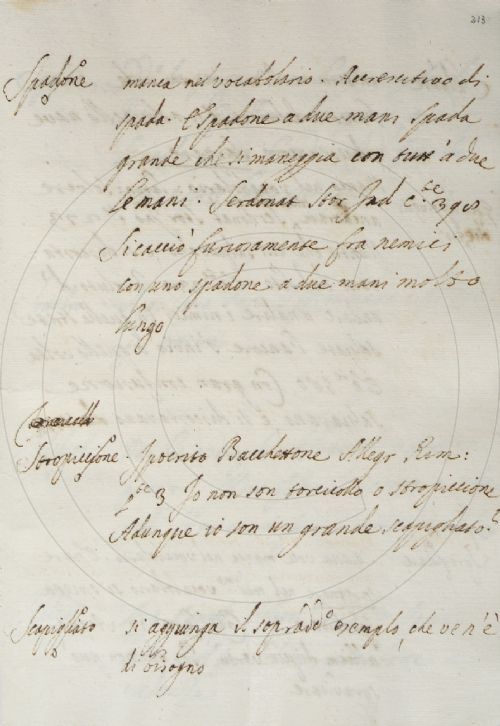 213
Spadone manca nel vocabolario. Accrescitivo di
spada. E Spadone a due mani spada
grande che si maneggia con tutt'a due
le mani. Serdonat Stor Ind c.te 398
si cacciò furiosamente fra nemici
con uno spadone a due mani molto
lungo
Stropiccione. Ipocrito Bacchettone Allegr Rim:
p.te 3 Io non son torcicollo o stropiccione
Adunque io son un grande scapigliato.
Scapigliato si aggiunga il sopradd.o esemplo, che ve n'è
di bisogno